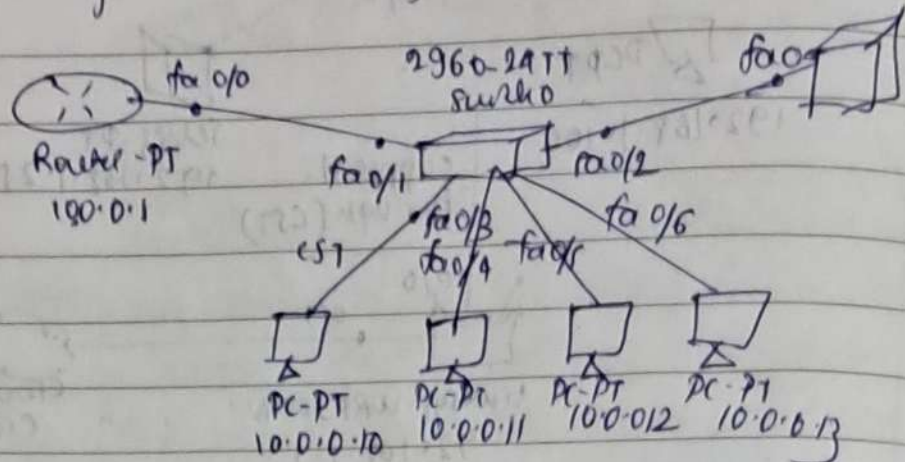 fa 0/0
2960-24TT
fa0
Router-PT
190.0.1
fa0/1
fa0/2
fa0/3
fa0/4
fa0/5
fa0/6
PC-PT
10.0.0.10
PC-PT
10.0.0.11
PC-PT
10.0.012
PC-PT
10.0.0.13